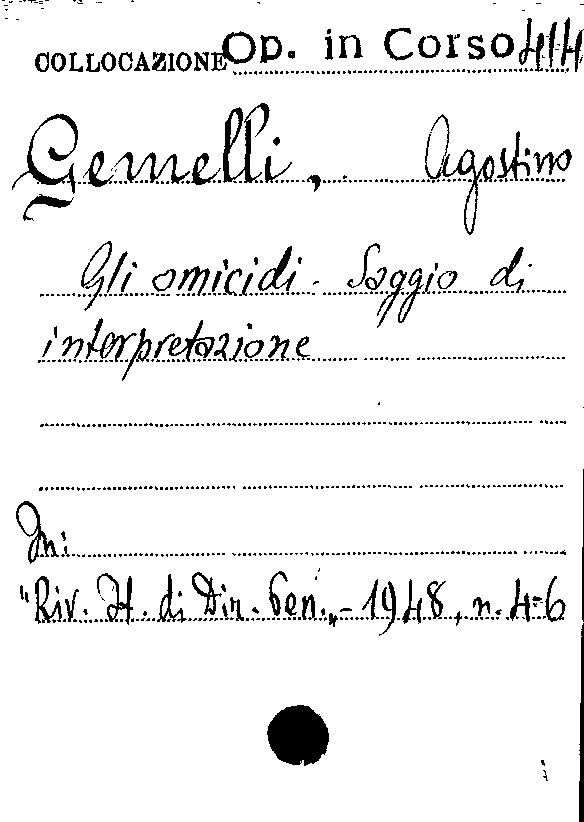 COLLOCAZIONE Op. in Corso 414
Gemelli, Agostino
Gli omicidi. Saggio di
interpretazione
In:
"Riv. It. di Dir. Pen.„ - 1948, n. 4-6